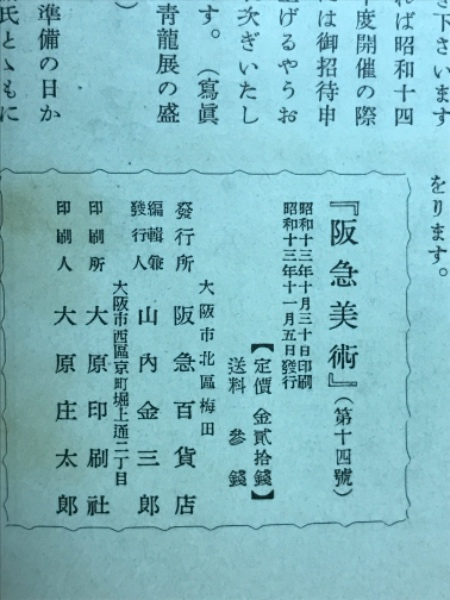 き下さいます
れば昭和十四
年度開催の際
は御招待申
上げるやうお
次ぎいたし
す。（寫眞
青龍展の盛
）
準備の日か
氏と丶もに
をります。
『阪急美術』（第十四號）
昭和十三年十月三十日印刷
昭和十三年十一月五日發行
【定價 金貳拾錢】
送料 參錢
大阪市北區梅田
發行所 阪急百貨店
編輯兼發行人 山內金三郎
大阪市西區京町堀上通二丁目
印刷所 大原印刷社
印刷人 大原庄太郎